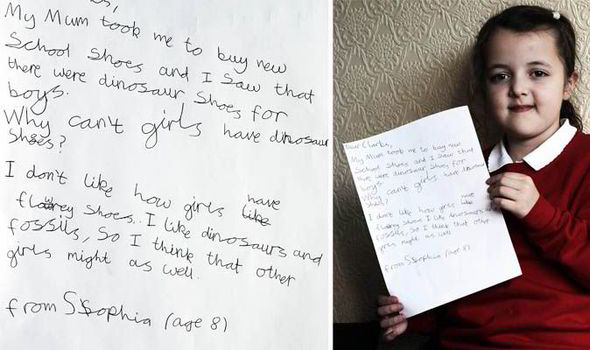 My Mum took me to buy new
School Shoes and I saw that
there were dinosaur Shoes for
boys.
Why can't girls have dinosaur
Shoes?
I don't like how girls have like
flowrey Shoes. I like dinosaurs and
fossils, So I think that other
girls might as well.
from Sophia (age 8)
Dear Clarks,
My Mum took me to buy new
School Shoes and I saw that
there were dinosaur Shoes for
boys
Why can't girls have dinosaur
Shoes?
I don't like how girls have like
flowrey Shoes. I like dinosaurs and
fossils, So I think that other
girls might as well.
from Sophia (age 8)